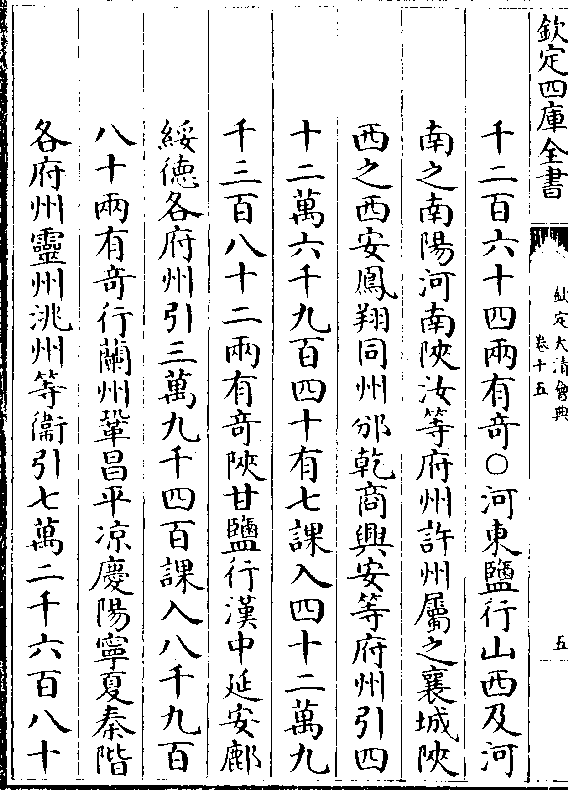 欽定四庫全書
欽定大清會典
卷十五
五
千二百六十四兩有奇○河東鹽行山西及河
南之南陽河南陝汝等府州許州屬之襄城陝
西之西安鳳翔同州邠乾商興安等府州引四
十二萬六千九百四十有七課入四十二萬九
千三百八十二兩有奇陝甘鹽行漢中延安鄜
綏德各府州引三萬九千四百課入八千九百
八十兩有奇行蘭州鞏昌平凉慶陽寧夏秦階
各府州靈州洮州等衞引七萬二千六百八十